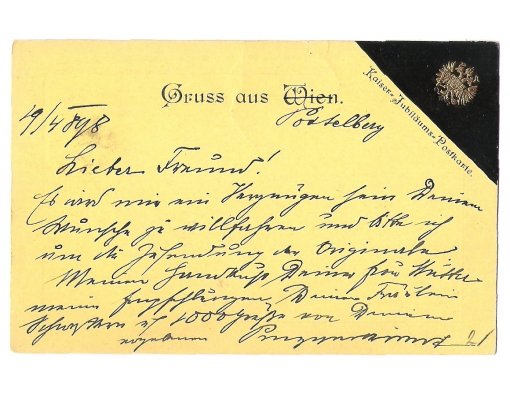 Gruss aus Wien.
Kaiser-Jubiläums-Postkarte.
Postelberg
19/4 898
Lieber Freund!
Es wird mir ein Vergnügen sein Deinem
Wunsche zu willfahren und bitte ich
um die Zusendung der Originale
Meinen Handkuß Deiner Frau Mutter
meine Empfehlungen Deinen Fräulein
Schwestern u 1000 Grüße von Deinem
ergebenen